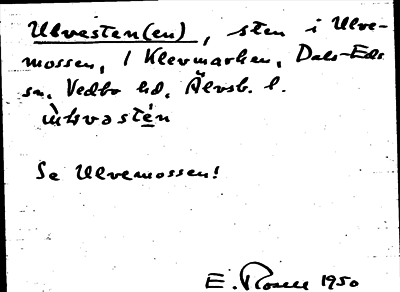 Ulvesten(en), sten i Ulve-
mossen, / Klevmarken, Dals-Eds
sn, Vedbo hd, Älvsb. l.
Se Ulvemossen!
E. Rosell 1950